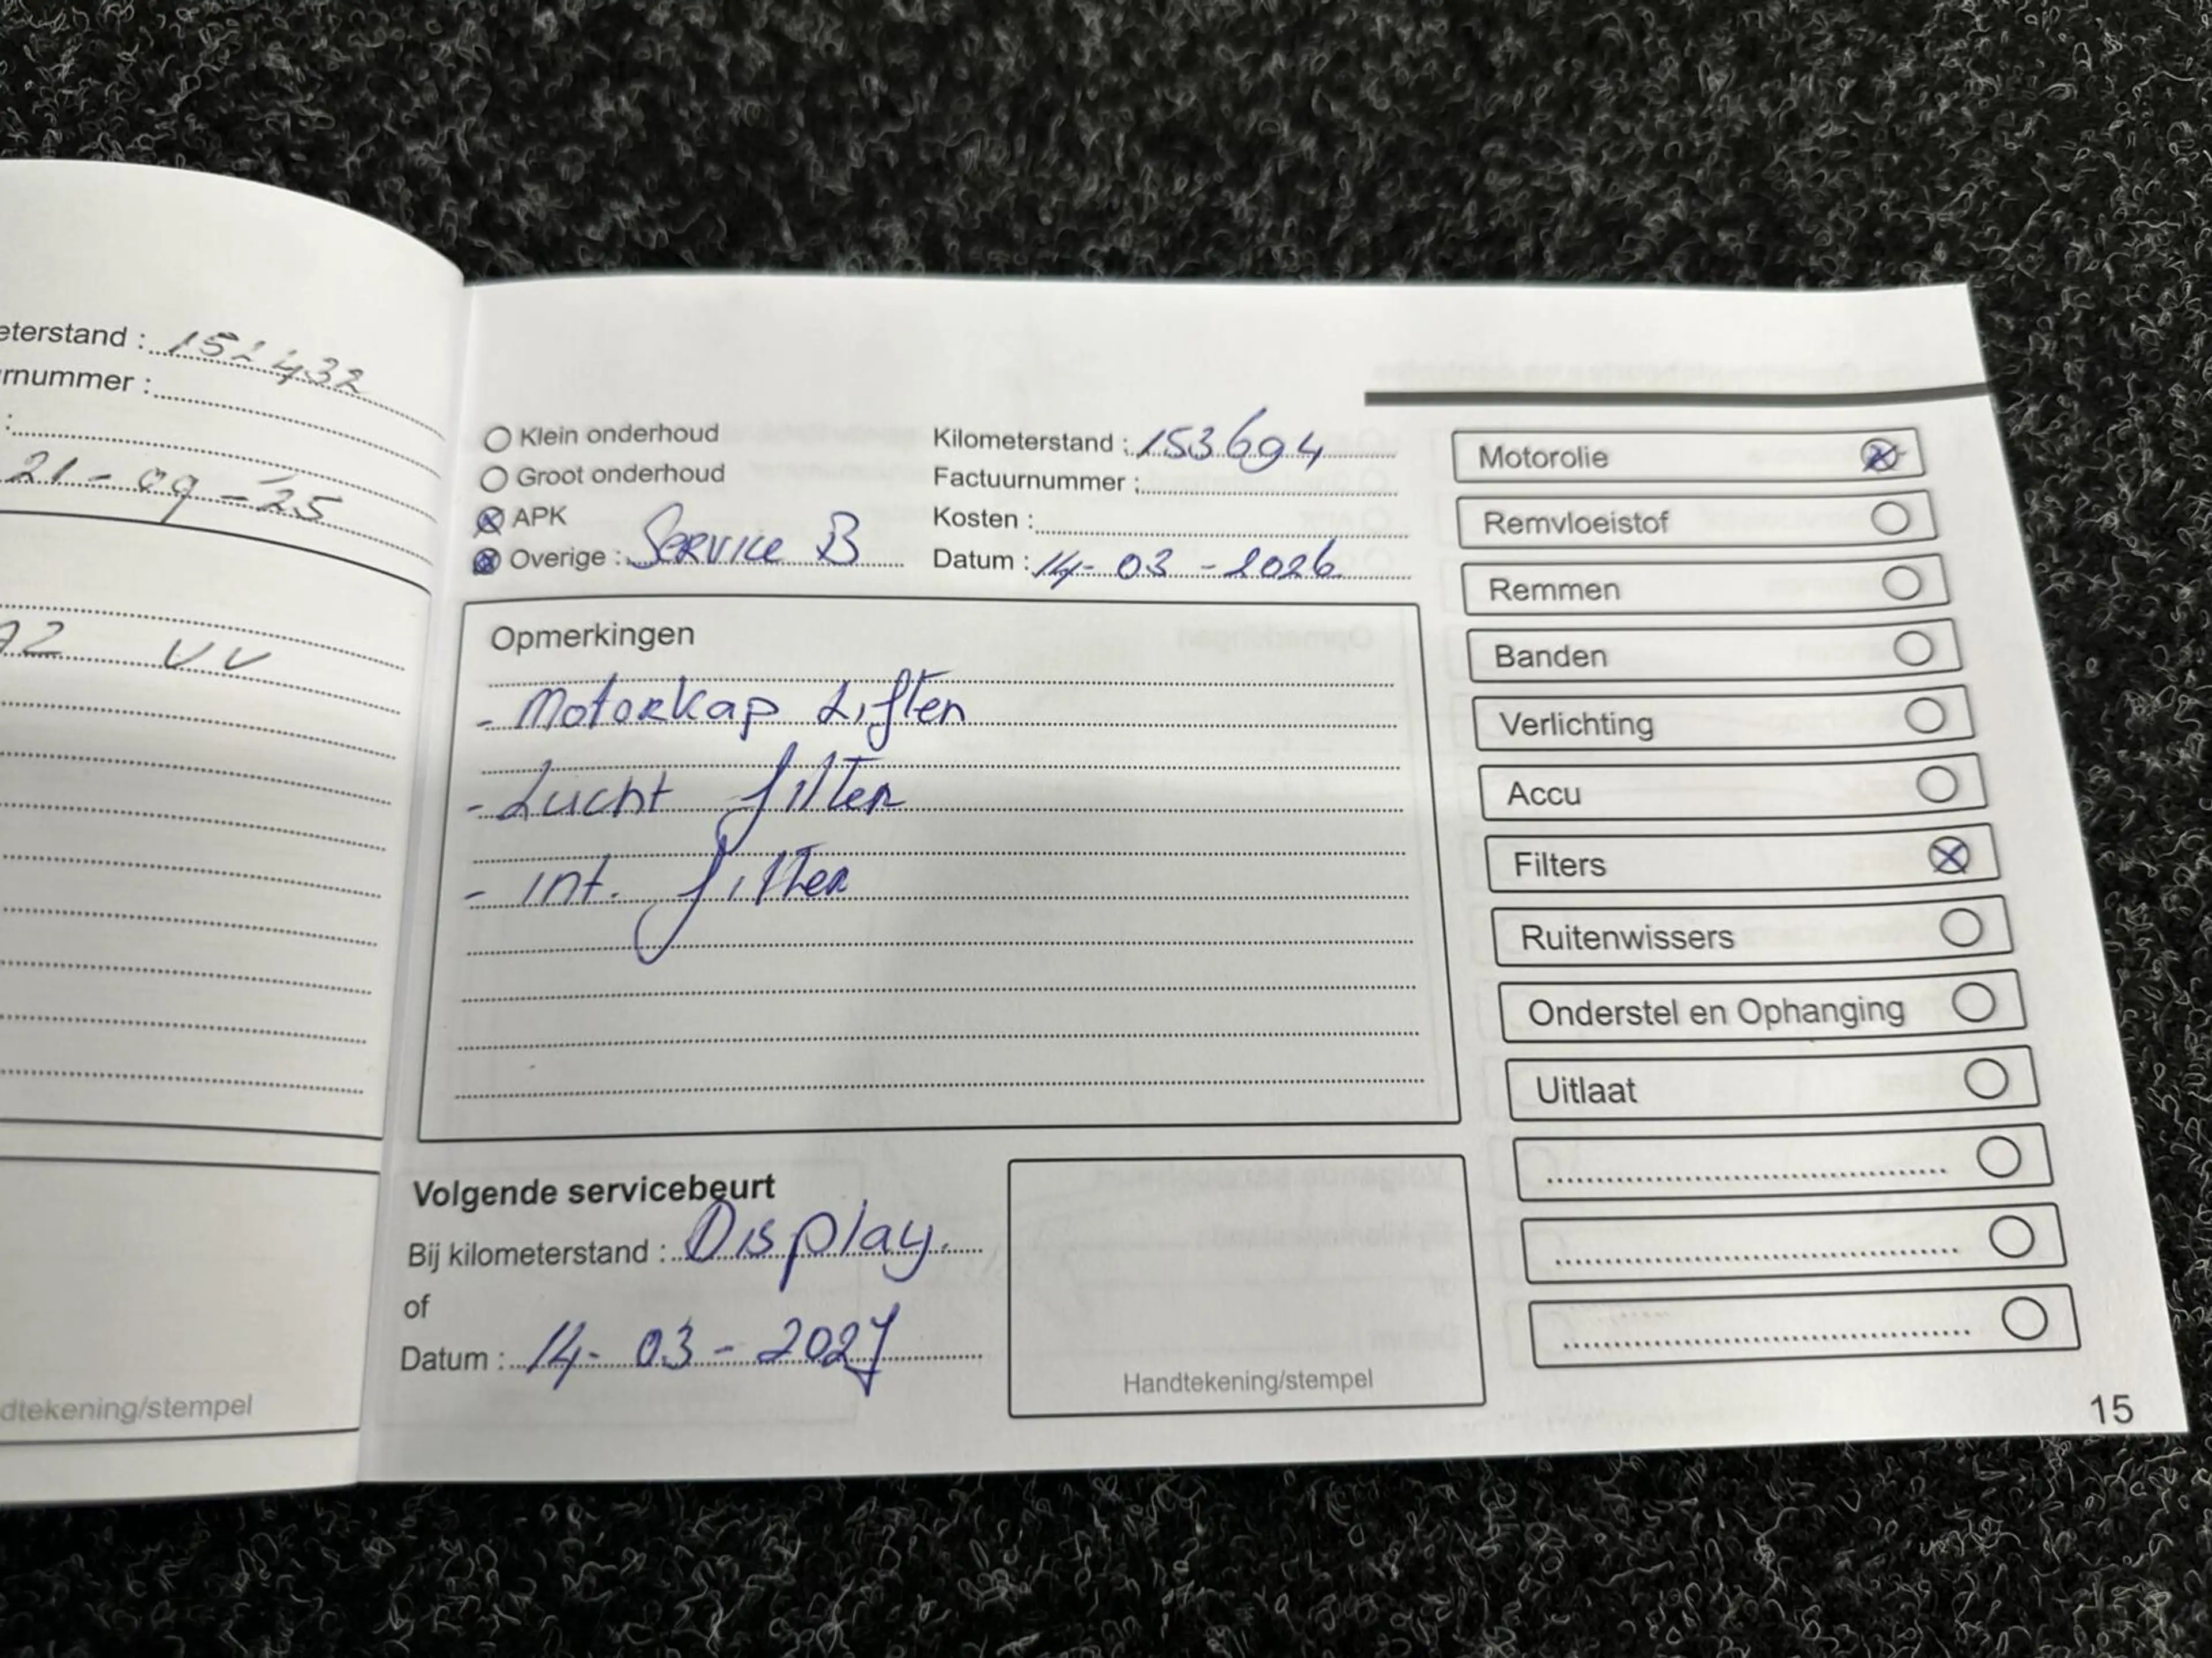 eterstand : 151432
rnummer :
:
21-09-'25
A2 VV
dtekening/stempel
Klein onderhoud
Groot onderhoud
APK
Overige : Service B
Kilometerstand : 153694
Factuurnummer :
Kosten :
Datum : 14-03-2026
Opmerkingen
- Motorkap Liften
- Lucht filter
- int. filter
Volgende servicebeurt
Bij kilometerstand : Display.
of
Datum : 14-03-2027
Handtekening/stempel
Motorolie
Remvloeistof
Remmen
Banden
Verlichting
Accu
Filters
Ruitenwissers
Onderstel en Ophanging
Uitlaat
15